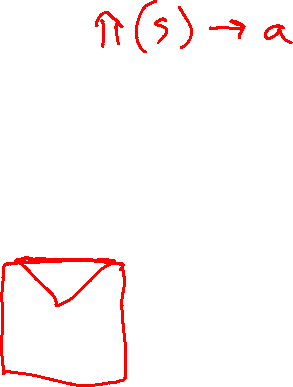 π(s) → a